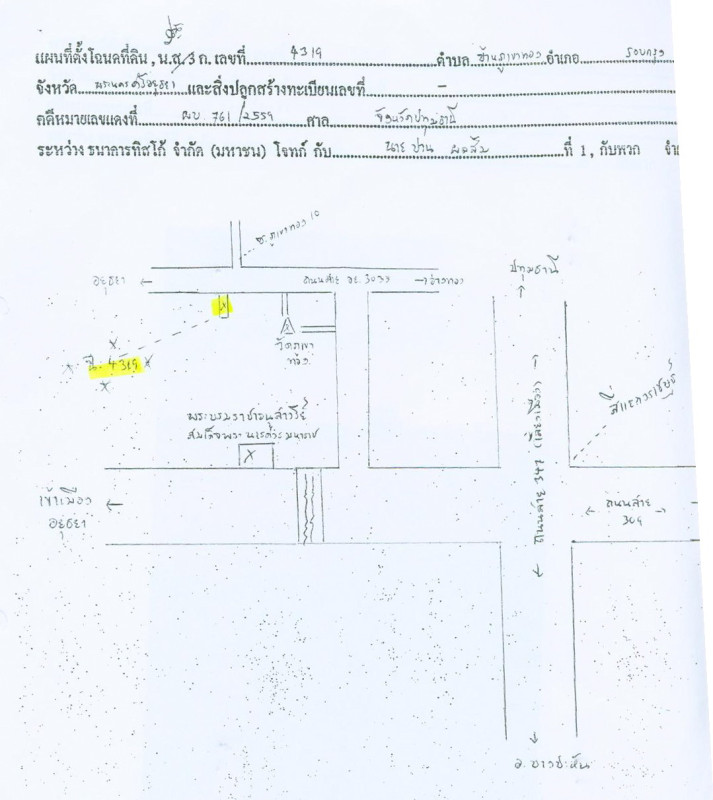 แผนที่ตั้งโฉนดที่ดิน, น.ส.3 ก. เลขที่ 4319 ตำบล บ้านภูเขาทอง อำเภอ
จังหวัด พระนครศรีอยุธยา และสิ่งปลูกสร้างทะเบียนเลขที่ -
คดีหมายเลขแดงที่ ผบ. 761/2559 ศาล จังหวัดปทุมธานี
ระหว่าง ธนาคารทิสโก้ จำกัด (มหาชน) โจทก์ กับ นาย ปาน ผลส้ม ที่ 1, กับพวก
ซ.ภูเขาทอง 10
อยุธยา
ถนนสาย อย. 3033
อ่างทอง
ปทุมธานี
วัดภูเขา
ทอง
น.ส. 4319
สี่แยกวรเชษฐ์
พระบรมราชานุสาวรีย์
สมเด็จพระนเรศวรมหาราช
X
ถนนสาย 347 (เลี่ยงเมือง)
เข้าเมือง
อยุธยา
ถนนสาย
309
อ. บางปะหัน